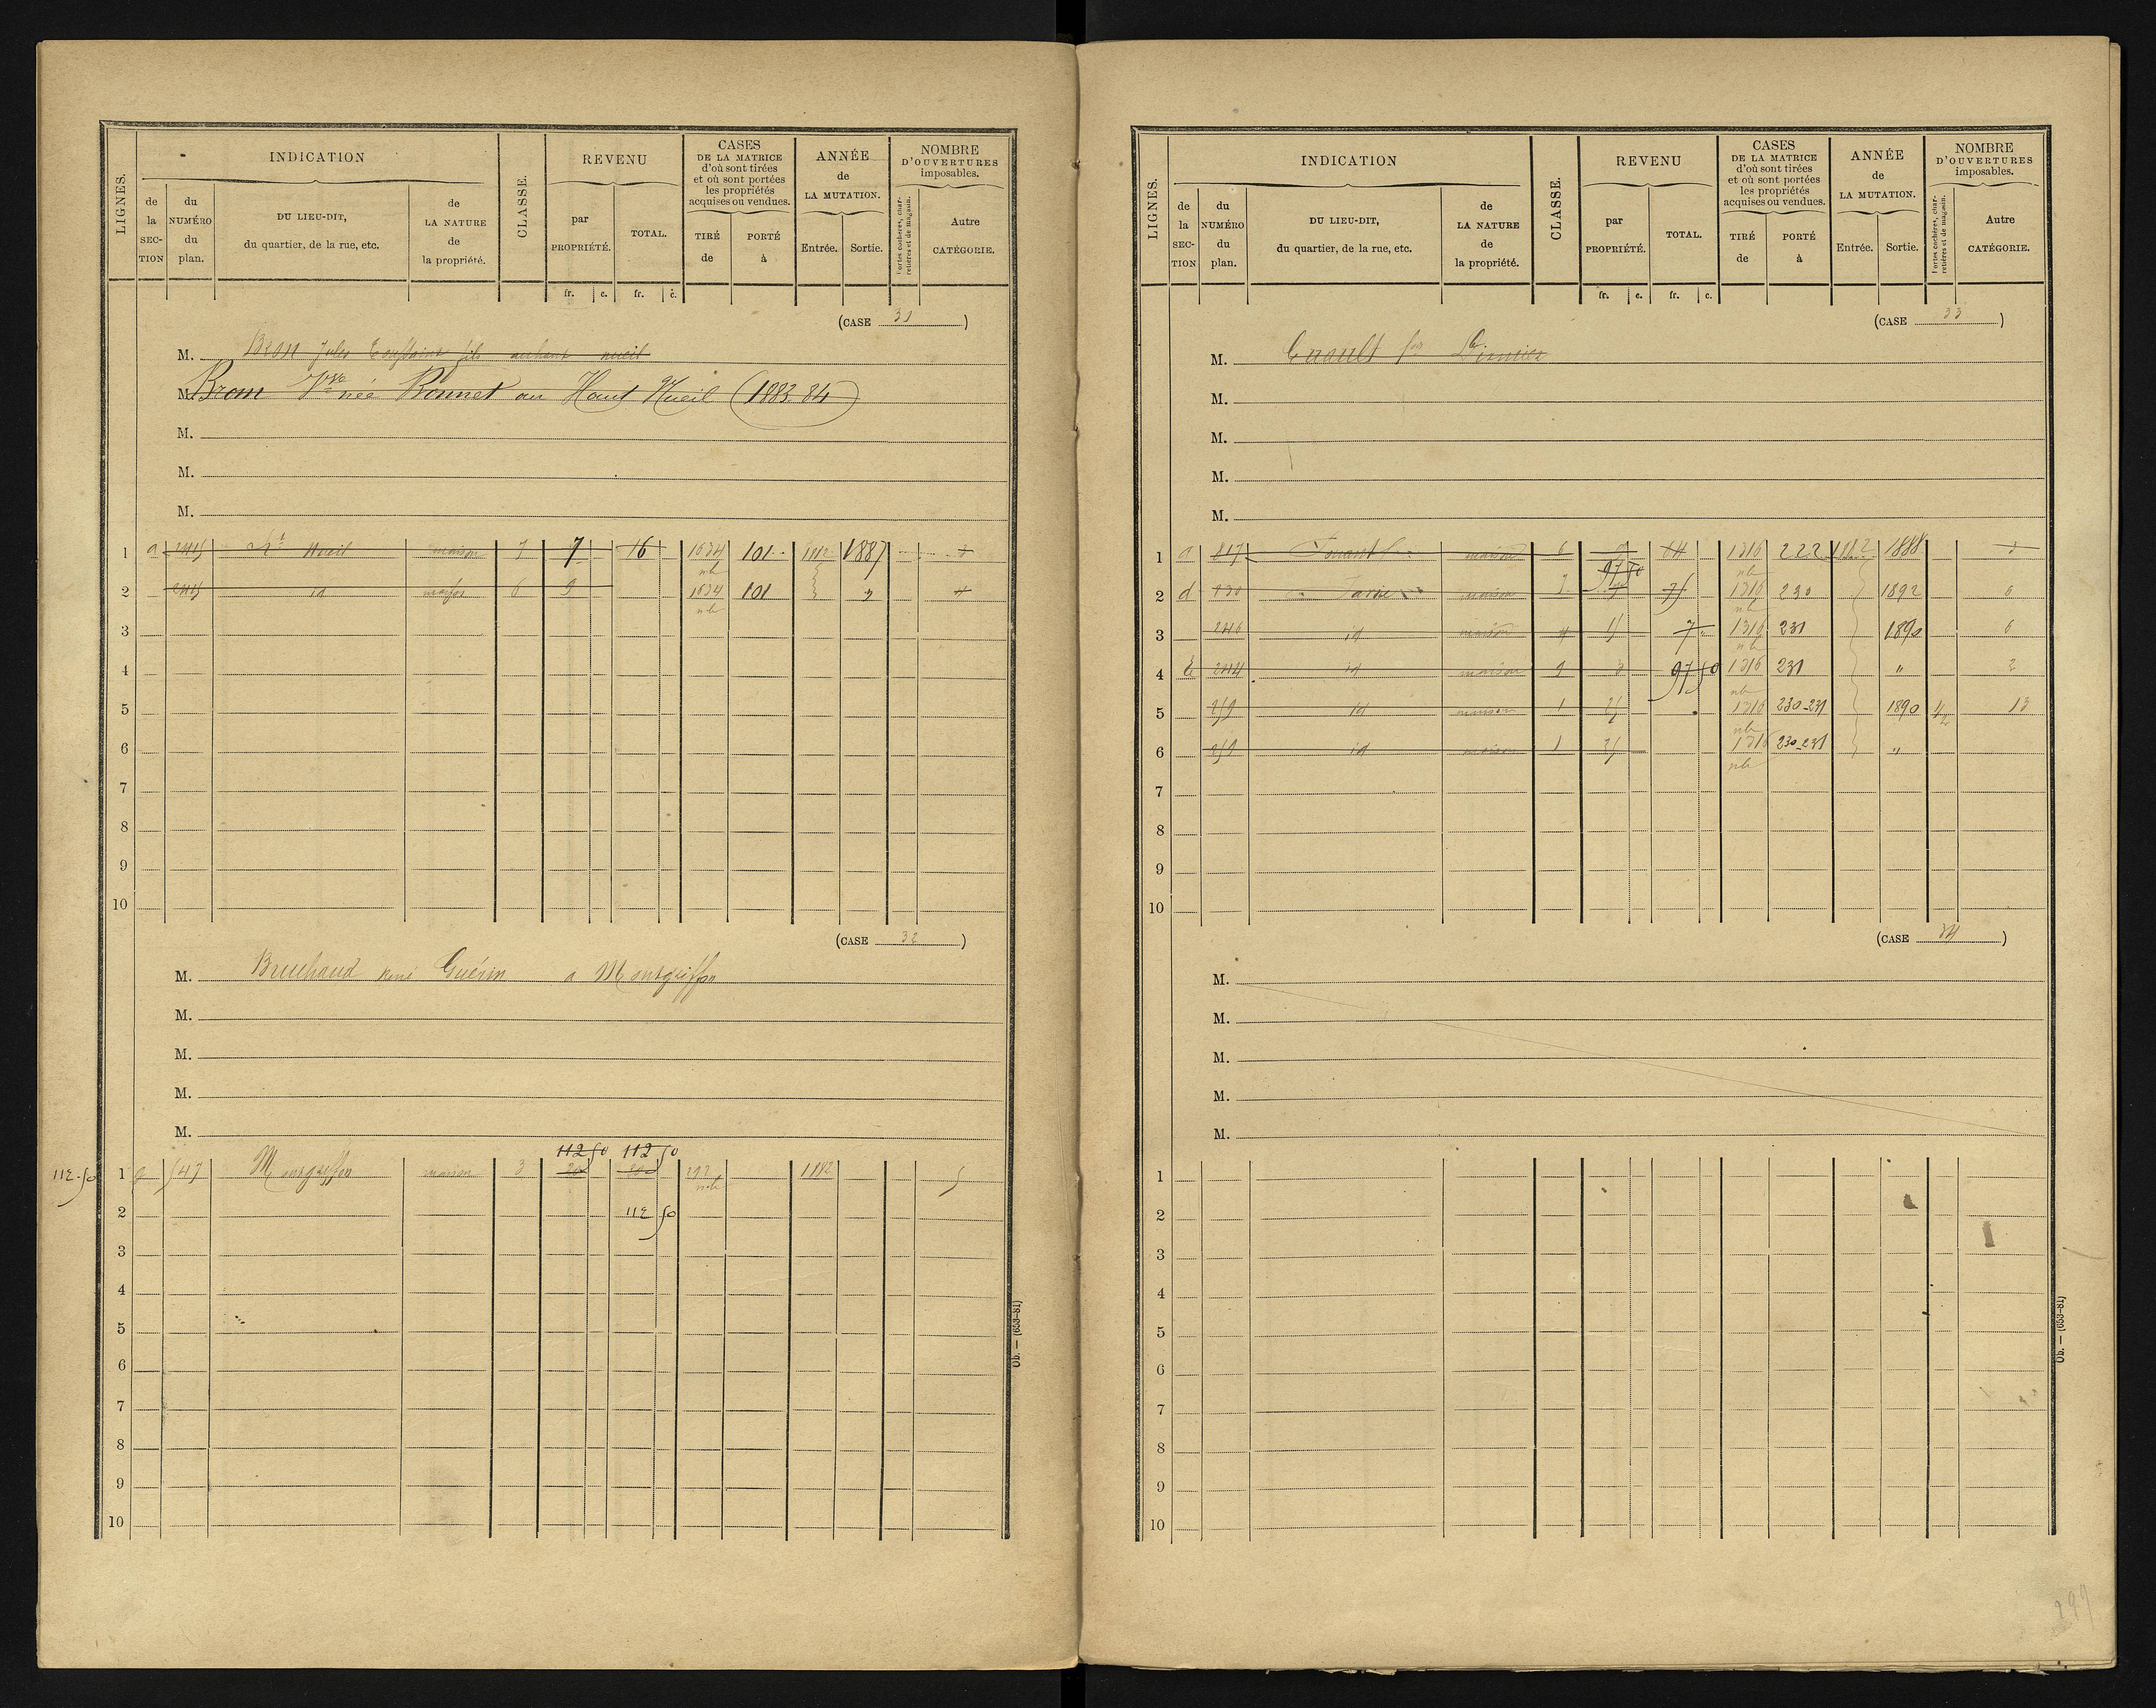 LIGNES.
INDICATION
de la SEC-TION
du NUMÉRO du plan.
DU LIEU-DIT, du quartier, de la rue, etc.
de LA NATURE de la propriété.
CLASSE.
REVENU
par PROPRIÉTÉ.
TOTAL.
fr. c. fr. c.
CASES DE LA MATRICE d'où sont tirées et où sont portées les propriétés acquises ou vendues.
TIRÉ de
PORTÉ à
ANNÉE de LA MUTATION.
Entrée. Sortie.
NOMBRE D'OUVERTURES imposables.
Portes cochères, charretières et de magasin.
Autre CATÉGORIE.
(CASE 31)
M. Bron Jules Toussaint fils auhaut nueil
M. Brom Vve née Bonnet au Haut Nueil (1883.84)
M.
M.
M.
1 a 2415 Nueil maison 7 7 16 1634 101 1882 1887
nb
2 2415 id maison 6 9 1634 101 " 4
nb
3
4
5
6
7
8
9
10
(CASE 32)
M. Bruchaud René Guérin a Montgriffon
M.
M.
M.
M.
112 50 112 50
112.50 1 547 Montgriffon maison 3 20 20 292 1882 5
nb
2 112 50
3
4
5
6
7
8
9
10
Ob. — (653-81)
LIGNES.
INDICATION
de la SEC-TION
du NUMÉRO du plan.
DU LIEU-DIT, du quartier, de la rue, etc.
de LA NATURE de la propriété.
CLASSE.
REVENU
par PROPRIÉTÉ.
TOTAL.
fr. c. fr. c.
CASES DE LA MATRICE d'où sont tirées et où sont portées les propriétés acquises ou vendues.
TIRÉ de
PORTÉ à
ANNÉE de LA MUTATION.
Entrée. Sortie.
NOMBRE D'OUVERTURES imposables.
Portes cochères, charretières et de magasin.
Autre CATÉGORIE.
(CASE 33)
M. Enault
M.
M.
M.
M.
1 a 817 maison 6 1316 222 1882 1888 3
97 50 nb
2 d 230 maison 75 1316 230 1892 6
nb
3 246 id maison 4 15 7 1316 231 1890 6
nb
4 E 244 id maison 9 3 97 50 1316 231 " 2
nb
5 259 id maison 1 25 1316 230-231 1890 13
nb
6 259 id maison 1 25 1316 230-231 "
nb
7
8
9
10
(CASE 34)
M.
M.
M.
M.
M.
1
2
3
4
5
6
7
8
9
10
Ob. — (653-81)